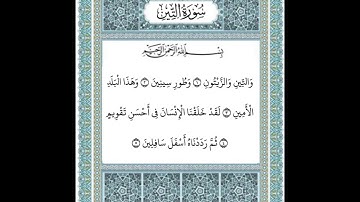 سُورَةُ التِّينِ
بِسْمِ اللَّهِ الرَّحْمَٰنِ الرَّحِيمِ
وَالتِّينِ وَالزَّيْتُونِ ۝١ وَطُورِ سِينِينَ ۝٢ وَهَٰذَا الْبَلَدِ
الْأَمِينِ ۝٣ لَقَدْ خَلَقْنَا الْإِنْسَانَ فِي أَحْسَنِ تَقْوِيمٍ
۝٤ ثُمَّ رَدَدْنَاهُ أَسْفَلَ سَافِلِينَ ۝٥